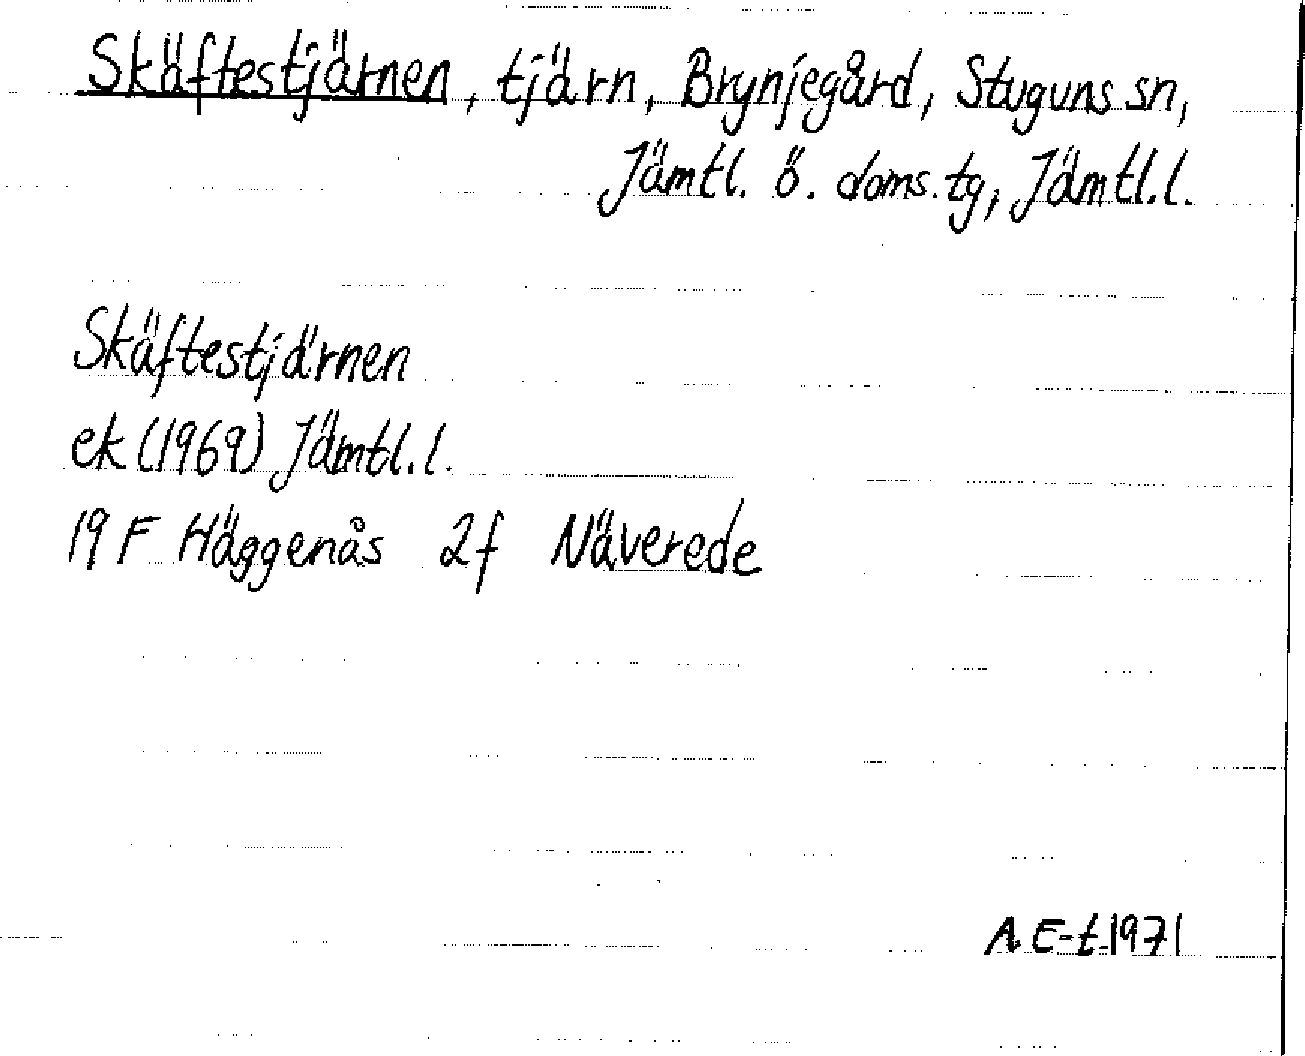 Skäftestjärnen, tjärn, Brynjegård, Stuguns sn,
Jämtl. ö. doms. tg, Jämtl. l.
Skäftestjärnen
ek (1969) Jämtl. l.
19 F Häggenås 2f Näverede
A. E-t 1971